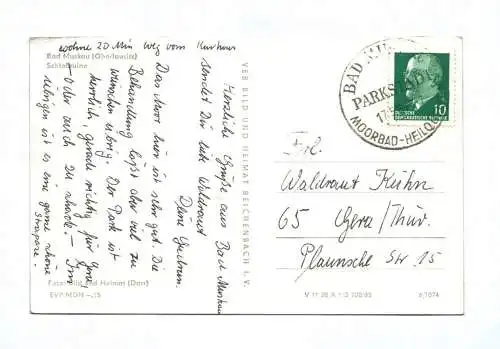 wohne 20 Min Weg vom Kurhaus
Bad Muskau (Oberlausitz)
Schloßruine
Herzliche Grüße aus Bad Muskau
sendet Dir liebe Waldraut
Deine Gertrau
Das Moor hier ist sehr gut. Die
Behandlung läßt aber viel zu
wünschen übrig. Der Park ist
herrlich, gerade richtig für
Oder auch zu stark. –
übrigen ist es eine ganz schöne
Strapaze.
Foto: Bild und Heimat (Darr)
EVP MDN –,15
VEB BILD UND HEIMAT REICHENBACH I. V.
V 11 28 A 1/B 700/65
6/1074
BAD MUSKAU
PARKSTADT
MOORBAD-HEILQU
DEUTSCHE
DEMOKRATISCHE REPUBLIK
10
Frl.
Waldraut Kühn
65 Gera/Thür.
Plaunsche Str. 15